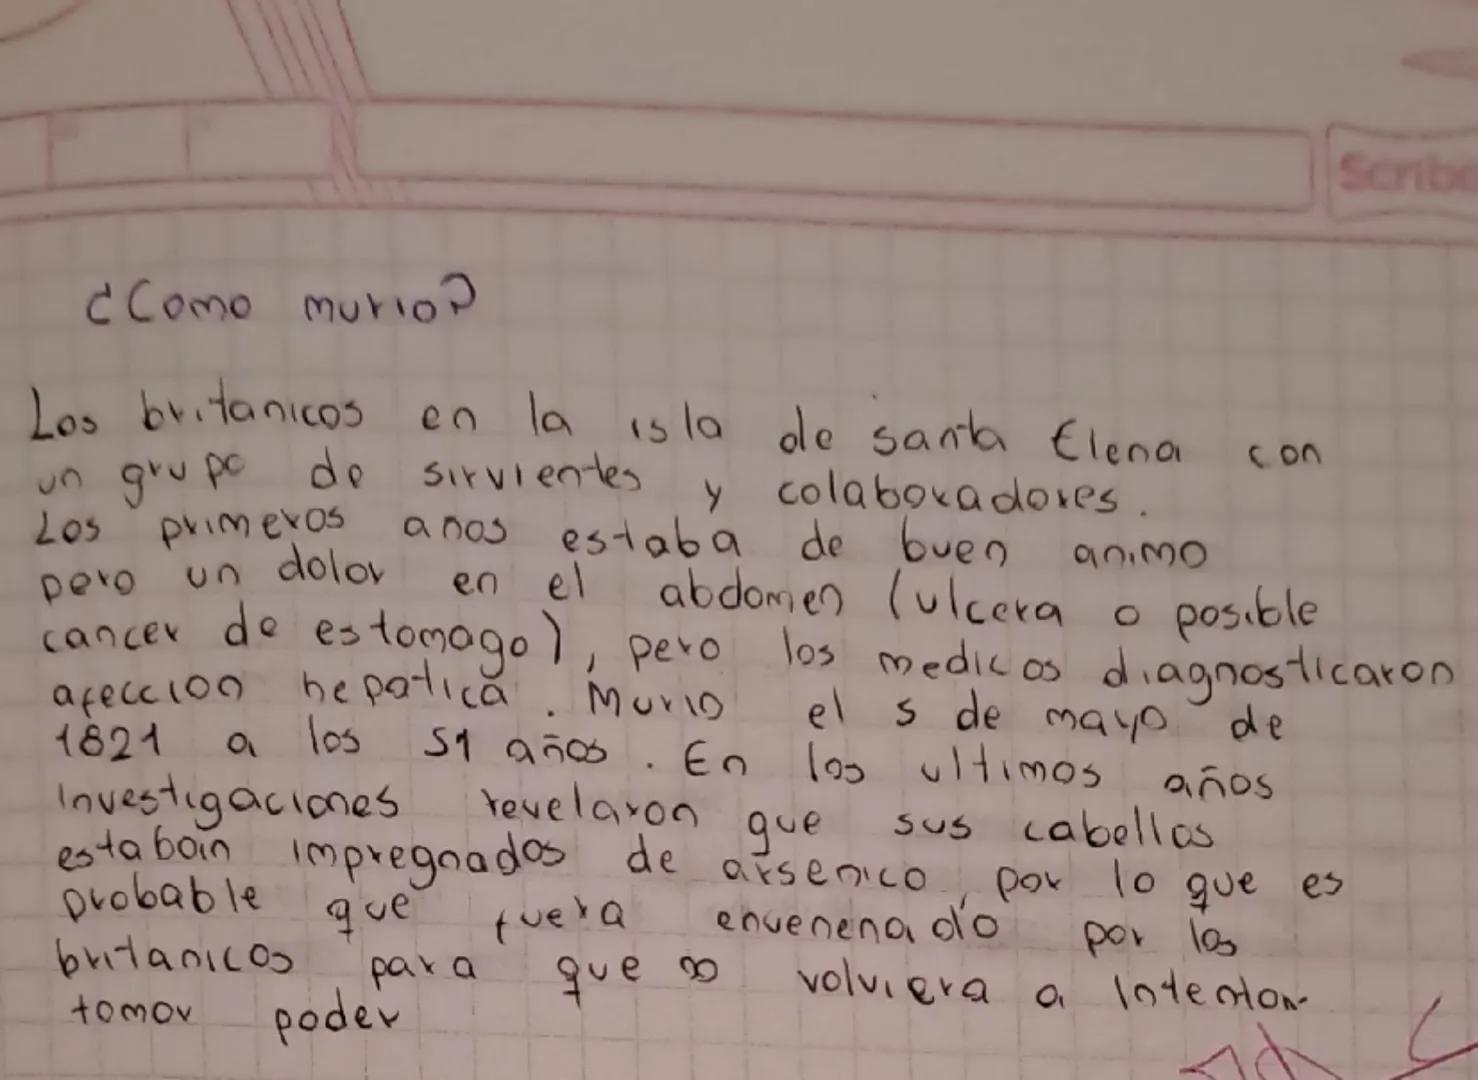 Scribe
¿Como murio?
Los britanicos en la isla de santa Elena con
un grupo de sirvientes y colaboradores.
Los primeros anos estaba de buen animo
pero un dolor en el abdomen (ulcera o posible
cancer de estomago), pero los medicos diagnosticaron
afeccion hepatica. Murio el 5 de mayo de
1821 a los 51 años. En los ultimos años
investigaciones revelaron que sus cabellos
estaban impregnados de arsenico, por lo que es
probable que fuera envenenado por los
britanicos para que no volviera a intentar
tomar poder